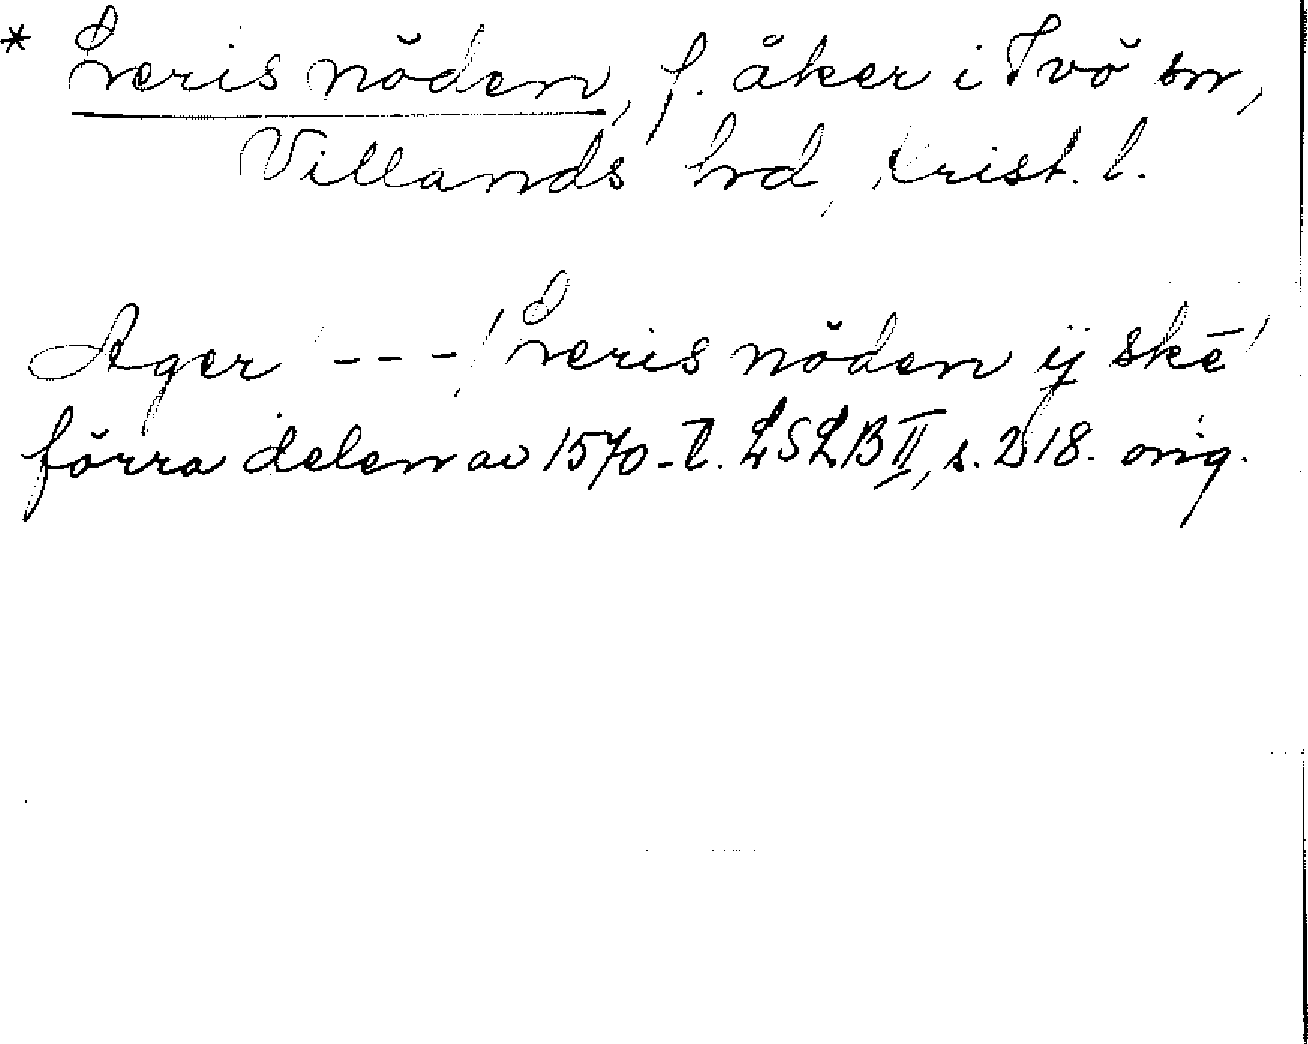 * Leris nöden, f. åker i Ivö sn,
Villands hrd, Krist. l.
Ager --- / Leris nöden ij skē /
förra delen av 1570-t. LSLB II, s. 218. orig.